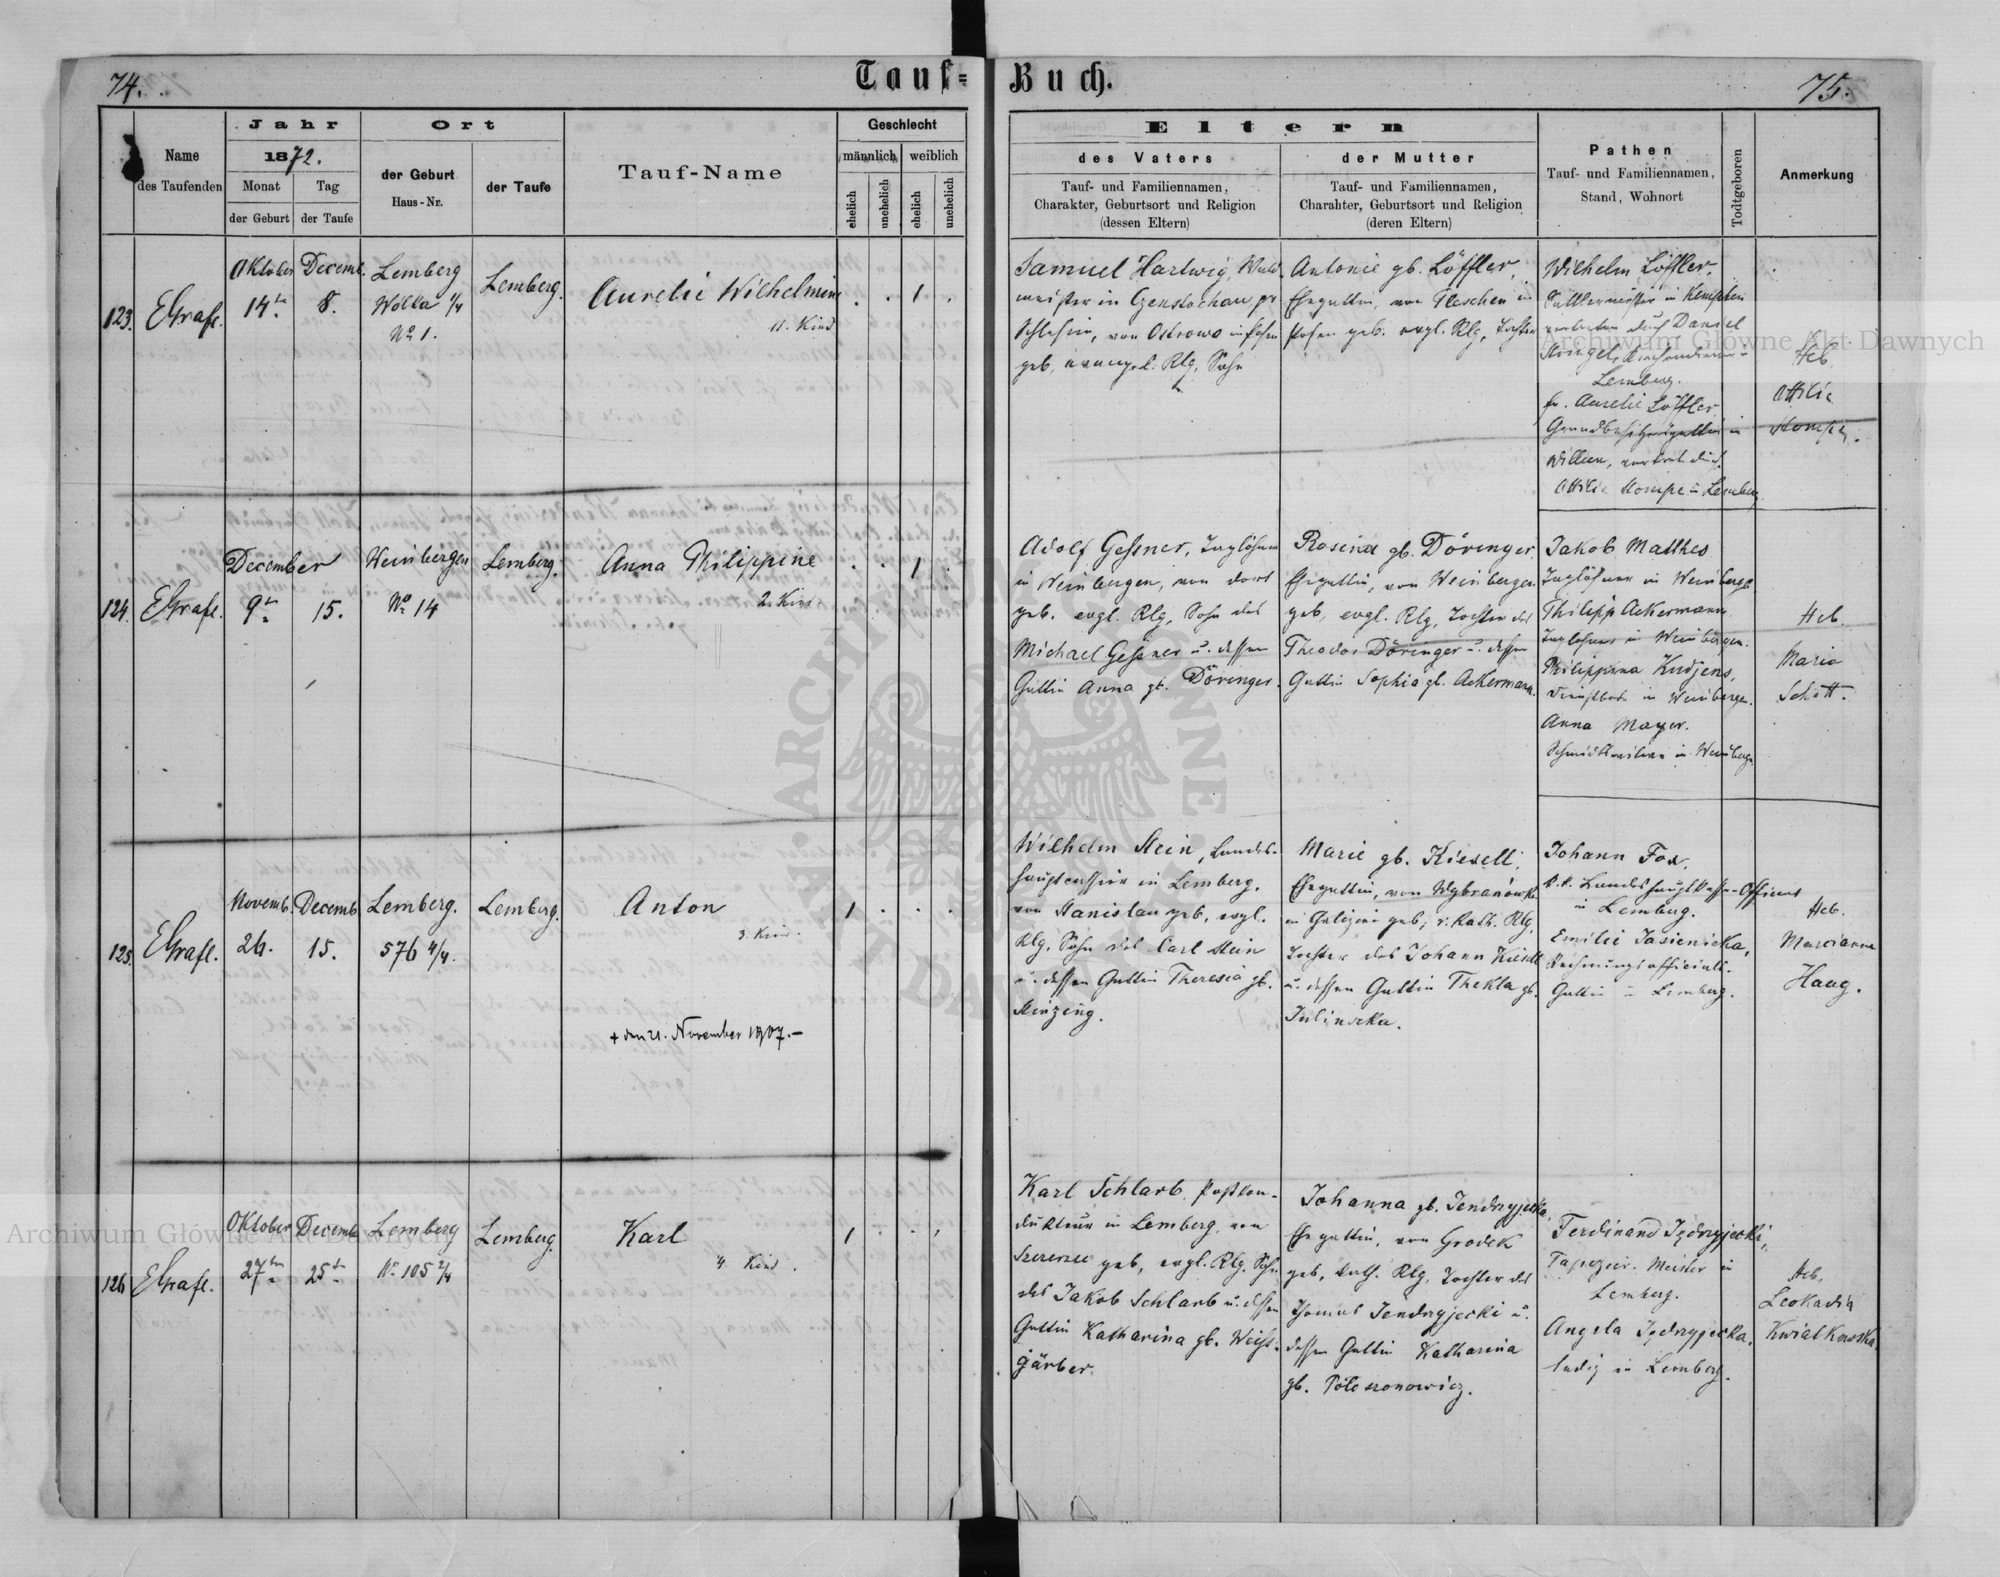 74.
Tauf=
Buch.
75.
Name
des Taufenden
Jahr
1872.
Monat
der Geburt
Tag
der Taufe
Ort
der Geburt
Haus-Nr.
der Taufe
Tauf-Name
Geschlecht
männlich
weiblich
ehelich
unehelich
ehelich
unehelich
Eltern
des Vaters
Tauf- und Familiennamen,
Charakter, Geburtsort und Religion
(dessen Eltern)
der Mutter
Tauf- und Familiennamen,
Charahter, Geburtsort und Religion
(deren Eltern)
Pathen
Tauf- und Familiennamen,
Stand, Wohnort
Todtgeboren
Anmerkung
123.
EGrafl.
Oktober
14.
Decemb.
8.
Lemberg
Wolla 1/4
No 1.
Lemberg.
Aurelie Wilhelmine
11. Kind
Samuel Hartwig,
in Czenstochau, pr
Schlesien, von Ostrowo in Posen
geb, evangel. Rlg, Sohn
Antonie gb. Löffler,
Ehegattin, von Pleschen in
Posen geb. evgl. Rlg, Tochter
Wilhelm Löffler,
Sattlermeister in Kempten
vertreten durch Daniel
Lemberg.
fr. Aurelie Löffler
Grundbesitzersgattin in
vertret. durch
Ottilie Kompe in Lemberg
Heb.
Ottilie
Kompe.
124.
EGrafl.
December
9
15.
Weinbergen
No 14
Lemberg.
Anna Philippine
2. Kind.
Adolf Gessner, Taglöhner
in Weinbergen, von dort
geb. evgl. Rlg, Sohn des
Michael Gessner u. dessen
Gattin Anna gb. Döringer.
Rosina gb. Döringer.
Ehegattin, von Weinbergen
geb, evgl. Rlg, Tochter des
Theodor Döringer u. dessen
Gattin Sophia gb. Ackermann.
Jakob Matthes
Taglöhner in Weinbergen
Philipp Ackermann
Taglöhner in Weinbergen.
Philippina Kudjens,
Dienstbote in Weinbergen.
Anna Mayer.
in Weinbergen
Heb.
Maria
Schott.
125.
EGrafl.
Novemb.
26.
Decemb.
15.
Lemberg.
576 4/4.
Lemberg.
Anton
3. Kind.
+ den 21. November 1907.–
Wilhelm Stein, Landes-
hauptcassier in Lemberg,
von Stanislau geb, evgl.
Rlg. Sohn des Carl Stein
u. dessen Gattin Theresia gb.
Minzing.
Marie gb. Kiesell,
Ehegattin, von Wybranówka
in Galizien geb; r. kath. Rlg,
Tochter des Johann Kiesell
u. dessen Gattin Thekla gb.
Julinska.
Johann Fox,
k.k. Landeshauptkasse-Officient
in Lemberg.
Emilie Jasienicka,
Rechnungsofficials-
Gattin in Lemberg.
Heb.
Marcianna
Haag.
126
EGrafl.
Oktober
27
Decemb
25
Lemberg
No 105 2/4
Lemberg.
Karl
4. Kind.
Karl Schlarb, Postkon-
dukteur in Lemberg, von
Szczerzec geb, evgl. Rlg. Sohn
des Jakob Schlarb u. dessen
Gattin Katharina gb. Weiss-
gärber.
Johanna gb. Jendrzyjecka,
Ehegattin, von Grodek
geb, kath. Rlg, Tochter des
Thomas Jendrzyjecki u.
dessen Gattin Katharina
gb.
Ferdinand Jędrzyjecki,
Tapezier-Meister in
Lemberg.
Angela Jędrzyjecka,
ledig in Lemberg.
Heb.
Leokadia
Kwiatkowska.
Archiwum Główne Akt Dawnych
Archiwum Główne Akt Dawnych